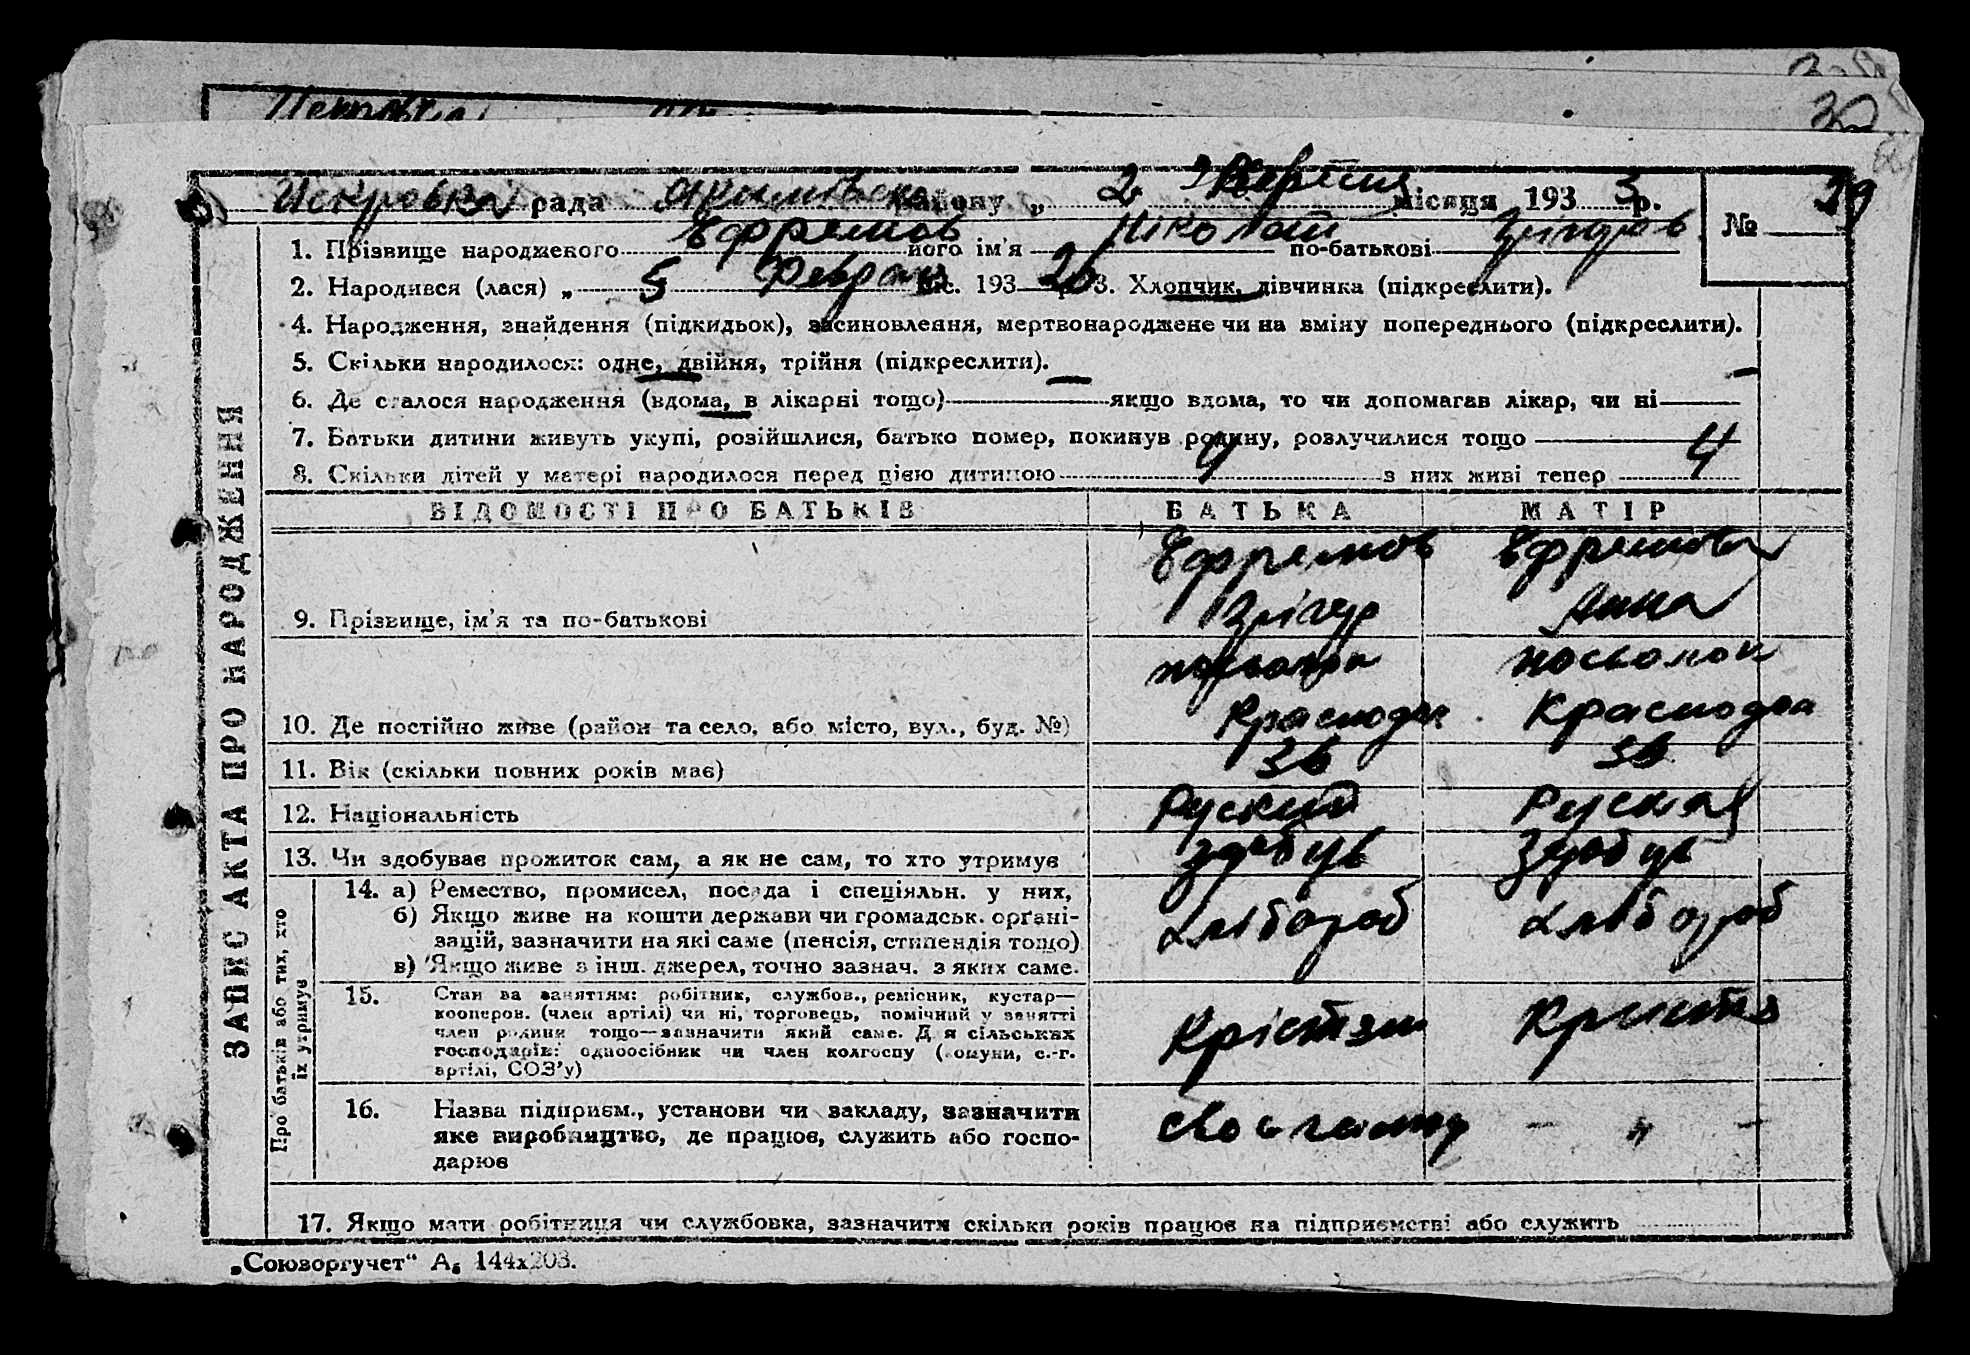 Искровка рада Якимівсько району „ 2 " Вересня місяця 193 3 р.
№ 39
1. Прізвище народженого Ефремов його ім'я Ніколай по-батькові Грігоров
2. Народився (лася) „ 5 Февраля міс. 193 р. 3. Хлопчик, дівчинка (підкреслити).
4. Народження, знайдення (підкидьок), засиновлення, мертвонароджене чи на зміну попереднього (підкреслити).
5. Скільки народилося: одне, двійня, трійня (підкреслити).
6. Де сталося народження (вдома, в лікарні тощо) якщо вдома, то чи допомагав лікар, чи ні
7. Батьки дитини живуть укупі, розійшлися, батько помер, покинув родину, розлучилися тощо
8. Скільки дітей у матері народилося перед цією дитиною 4 з них живі тепер 4
ЗАПИС АКТА ПРО НАРОДЖЕННЯ
ВІДОМОСТІ ПРО БАТЬКІВ БАТЬКА МАТІР
Ефремов Ефремова
9. Прізвище, ім'я та по-батькові Грігор Анна
посьолок
10. Де постійно живе (район та село, або місто, вул., буд. №)
11. Вік (скільки повних років має) 36 36
12. Національність Руский Руская
13. Чи здобуває прожиток сам, а як не сам, то хто утримує
Про батьків або тих, хто їх утримує
14. а) Ремество, промисел, посада і спеціяльн. у них,
б) Якщо живе на кошти держави чи громадськ. орґані-
зацій, зазначити на які саме (пенсія, стипендія тощо) хлібороб хлібороб
в) Якщо живе з інш. джерел, точно зазнач. з яких саме.
15. Стан за заняттям: робітник, службов., ремісник, кустар—
кооперов. (член артілі) чи ні, торговець, помічний у занятті
член родини тощо—зазначити який саме. Для сільських
господарів: одноосібник чи член колгоспу (комуни, с.-г.
артілі, СОЗ'у)
16. Назва підприєм., установи чи закладу, зазначити
яке виробництво, де працює, служить або госпо- – „ –
дарює
17. Якщо мати робітниця чи службовка, зазначити скільки років працює на підприємстві або служить
„Союзоргучет“ А₅ 144х203.